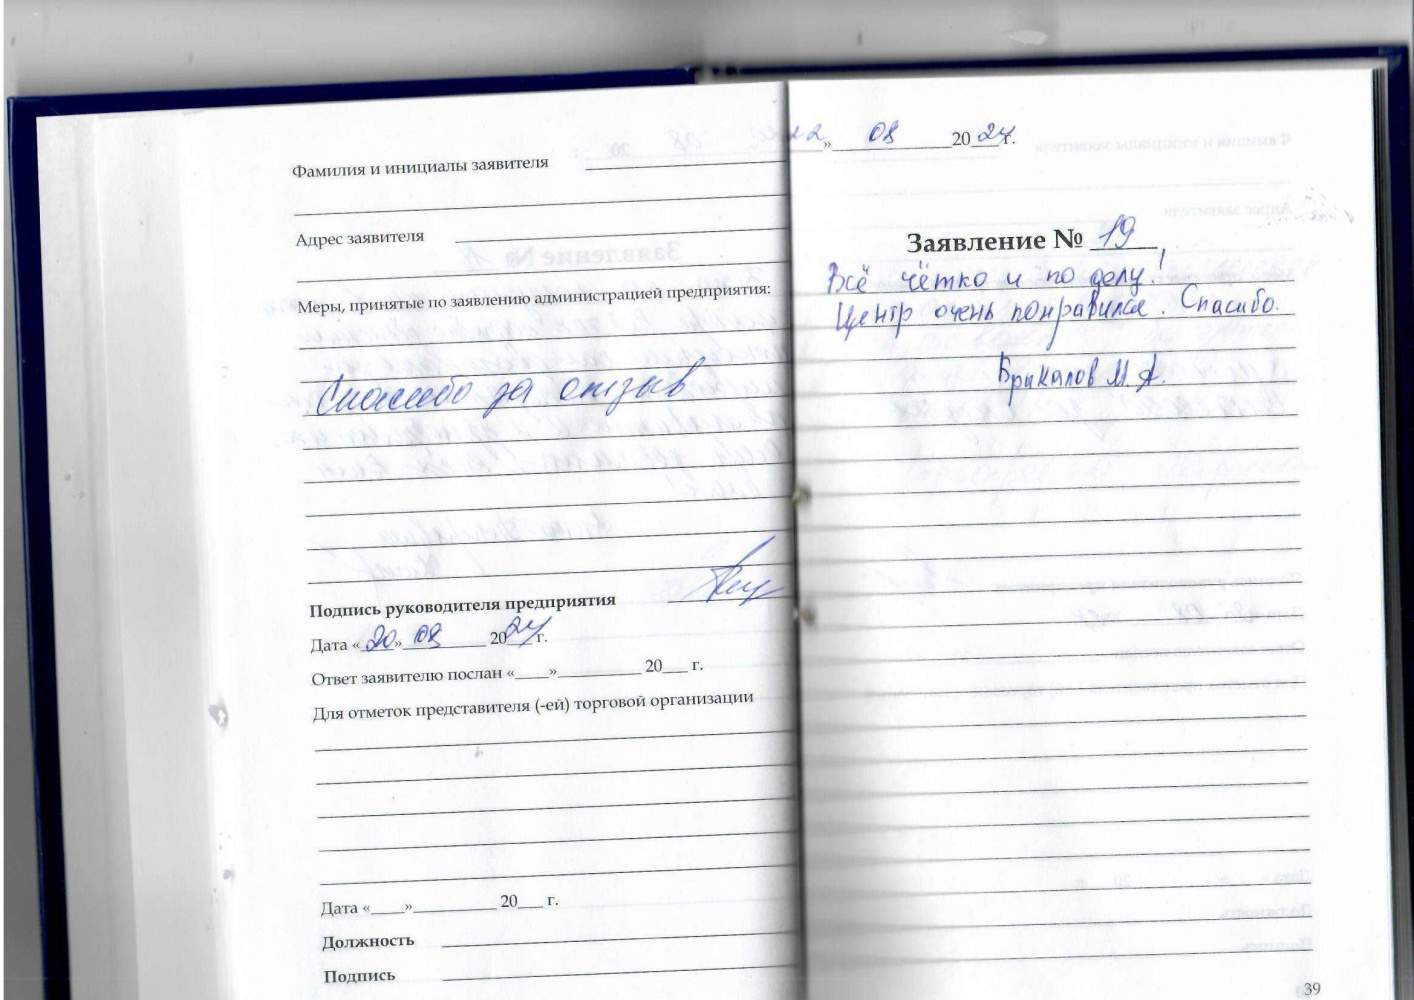 Фамилия и инициалы заявителя
Адрес заявителя
Меры, принятые по заявлению администрацией предприятия:
Спасибо за отзыв
Подпись руководителя предприятия
Дата «20» 08 2024 г.
Ответ заявителю послан «____»__________ 20___ г.
Для отметок представителя (-ей) торговой организации
Дата «____»__________ 20___ г.
Должность
Подпись
22» 08 2024 г.
Заявление № 19
Всё чётко и по делу!
Центр очень понравился. Спасибо.
Брикалов М.А.
39